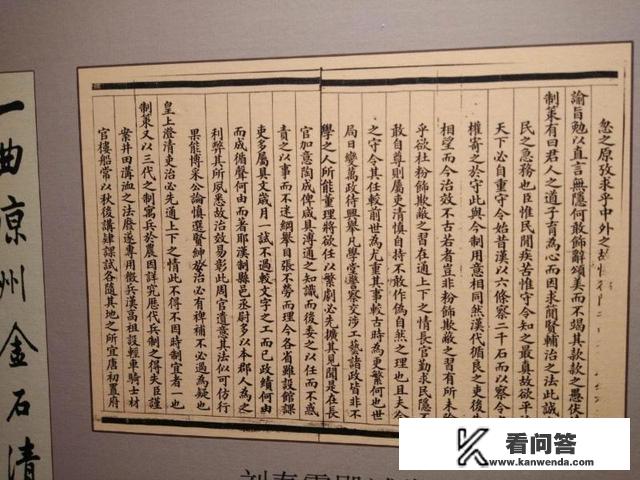 忽之原攷求乎中外之故惟
諭旨勉以直言無隱何敢飾辭頌美而不竭其款款之愚伏
制策有曰君人之道子育為心而因求簡賢輔治之法此誠
民之急務也臣惟民間疾苦惟守令知之最真故欲平
天下必自重守令始昔漢以六條察二千石而以察令
權寄之於守此與今制用意相同然漢代循良之吏後
相望而今治效不古若者豈非粉飾欺蔽之習有所未
乎欲杜粉飾欺蔽之習在通上下之情長官勤求民隱不
敢自尊則屬吏清慎自持不敢作偽自然之理也且夫今
之守令其任較前世為尤重其事較古時為更繁何也世
局日變萬政待興舉凡學堂警察交涉工藝諸政皆非不
學之人所能董理將欲任以繁劇必先擴其見聞是在長
官加意陶成俾咸具溥通之知識而後委之以任而不惑
責之以事而不迷綱舉目張不勞而理今各省雖設館課
吏多屬具文歲月一試不過較文字之工而已政績何由
而成循聲何由而著耶漢制縣邑丞尉多以本郡人為之
利弊其所夙悉故治效易彰此周官遺意其法似可仿行
果能博采公論慎選賢紳於治必有裨補不必過為疑也
皇上澄清吏治必先通上下之情此不得不因時制宜者一也
制策又以三代之制寓兵於農因詳究歷代兵制之得失臣謹
案井田溝洫之法廢遂專用徵兵漢高祖設輕車騎士材
官樓船常以秋後講肄課試各隨其地之所宜唐初置府
一曲涼州金石清
看问答
www.kanwenda.com